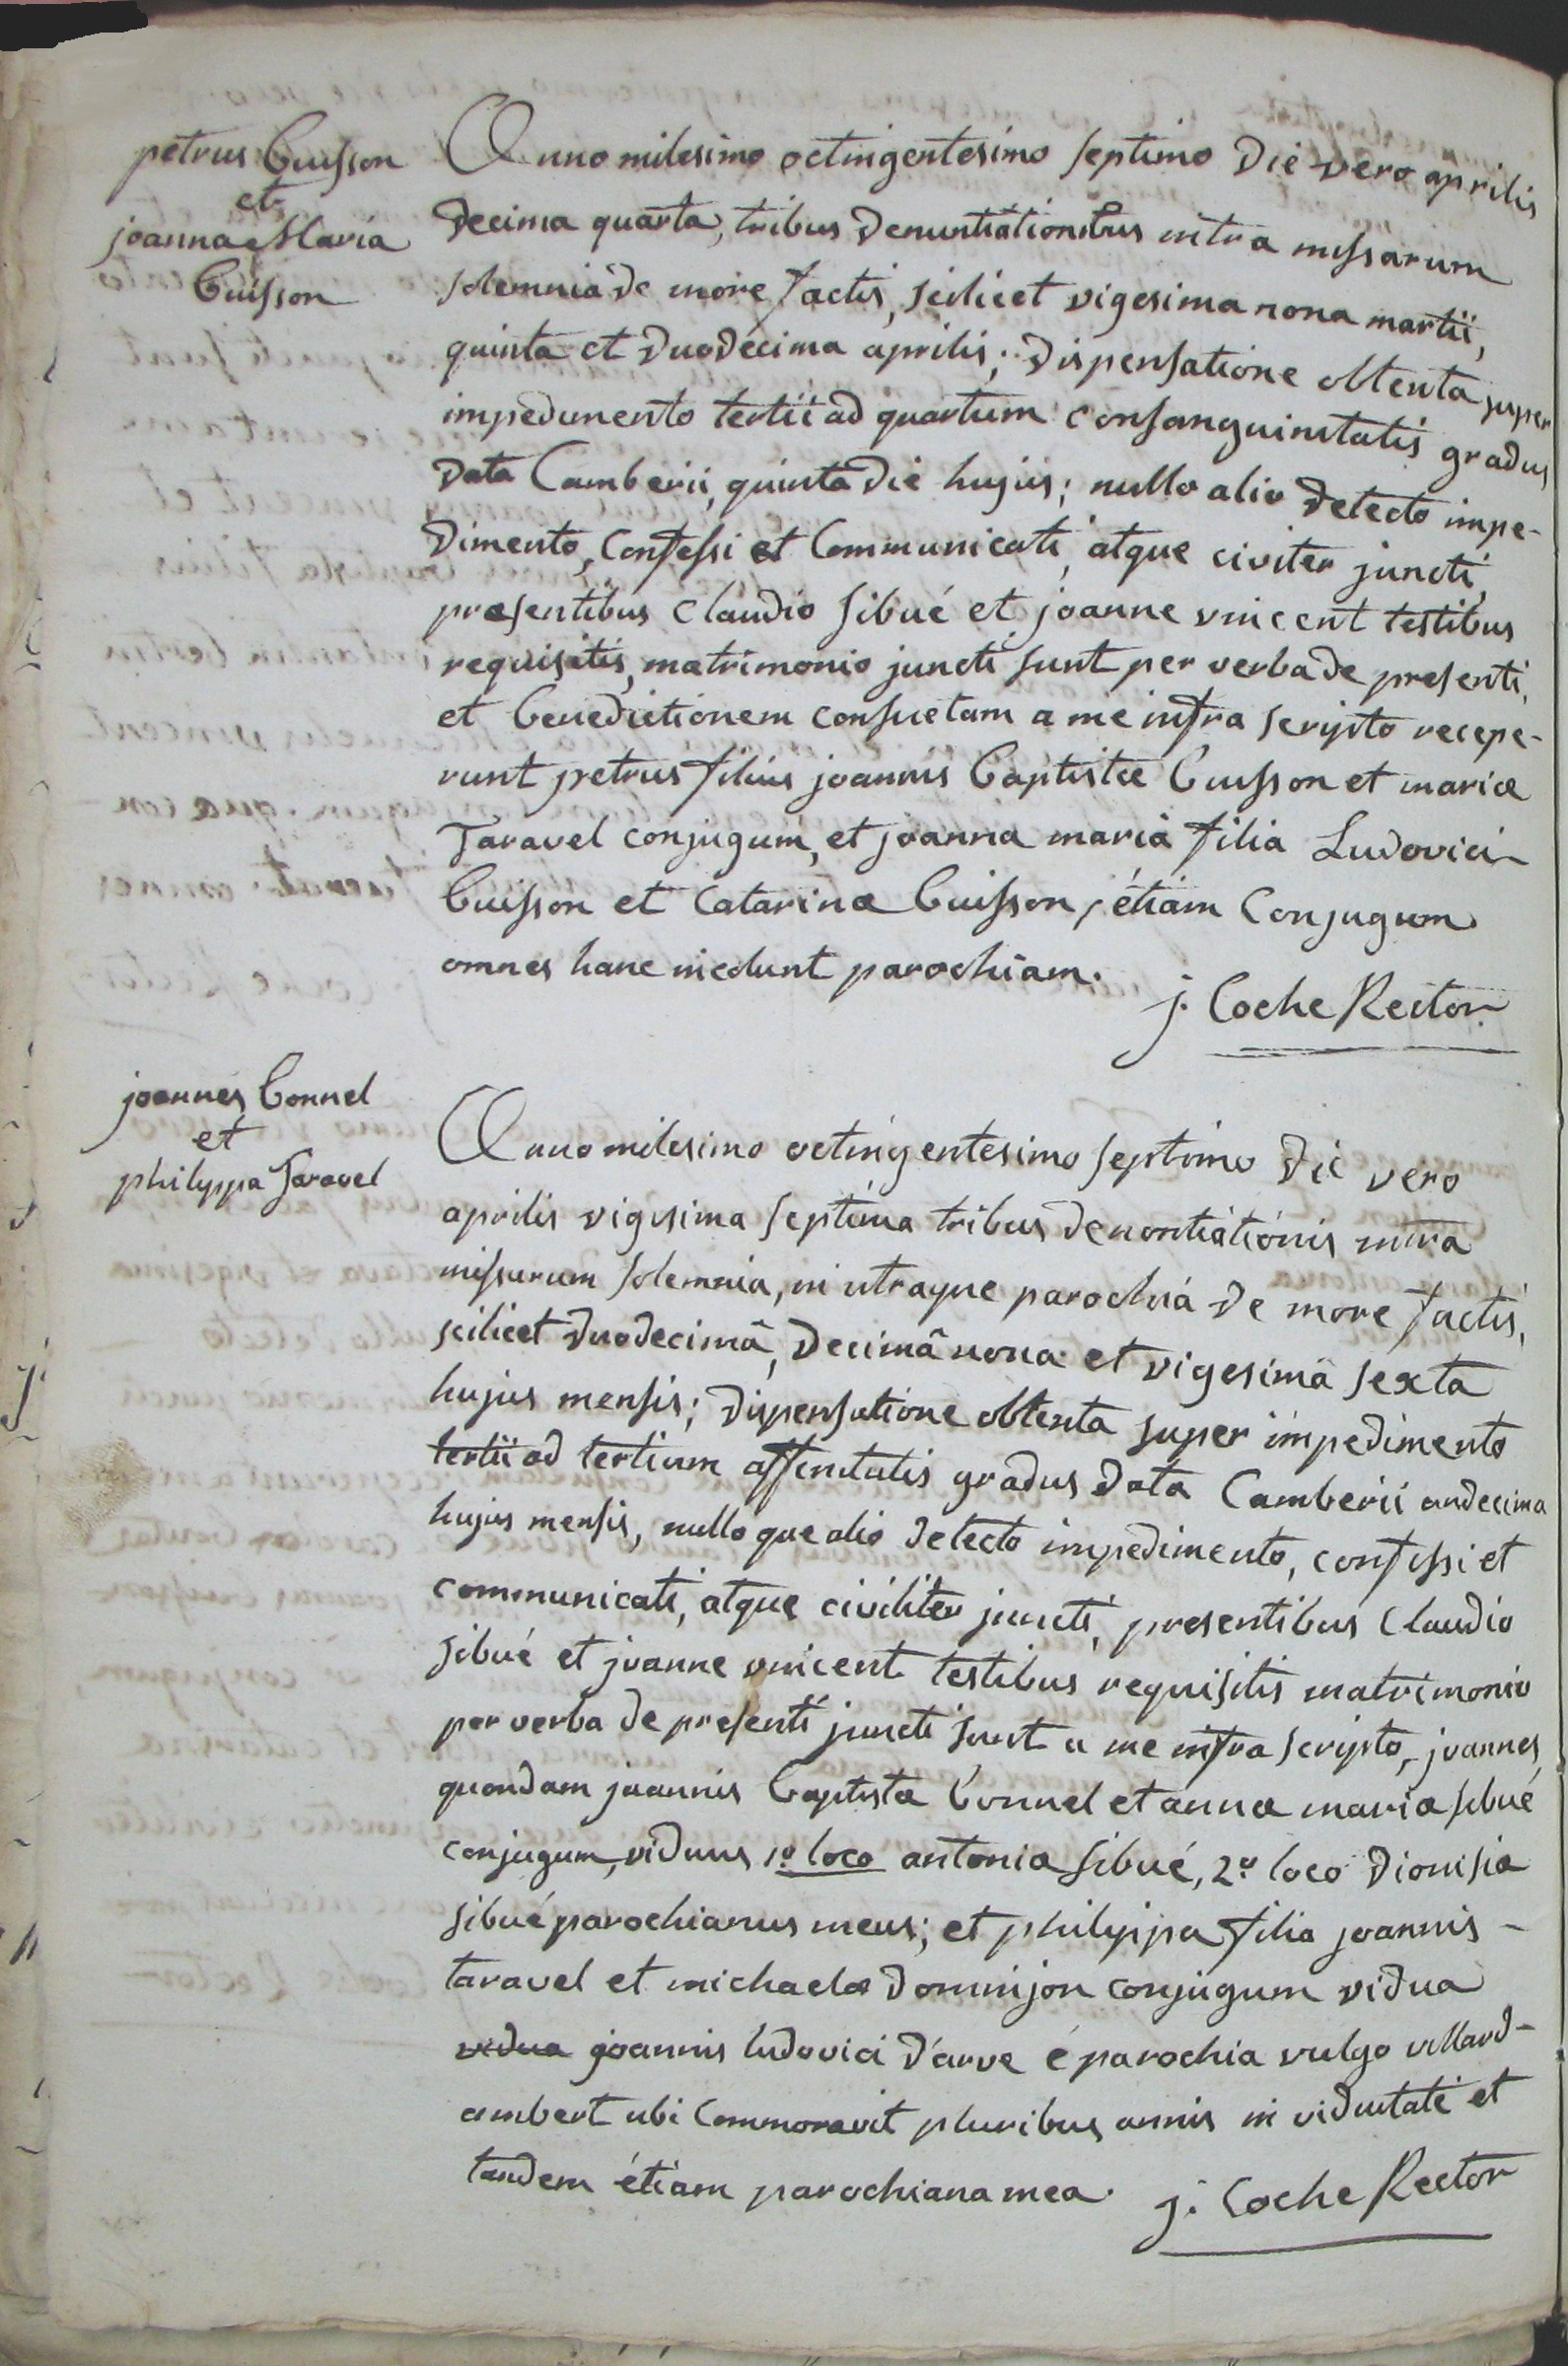 petrus Cuisson
et
joanna Maria
Cuisson
Anno milesimo octingentesimo septimo die vero aprilis
decima quarta, tribus denuntiationibus intra missarum
solemnia de more factis, scilicet vigesima nona martii,
quinta et duodecima aprilis; dispensatione obtenta super
impedimento tertii ad quartum consanguinitatis gradus
data Camberii, quinta die hujus; nullo alio detecto impe-
dimento, confessi et communicati, atque civiter juncti,
præsentibus claudio sibué et joanne vincent testibus
requisitis, matrimonio juncti sunt per verba de presenti,
et benedictionem consuetam a me infra scripto recepe-
runt petrus filius joannis baptistæ Cuisson et mariæ
Taravel conjugum, et joanna maria filia Ludovici
Cuisson et Catarinæ Cuisson, étiam Conjugum
omnes hanc incolunt parochiam.
j. Coche Rector
joannes Bonnel
et
philyppa Taravel
Anno milesimo octingentesimo septimo die vero
aprilis vigesima septima tribus denontiationis intra
missarum solemnia, in utraque parochiá de more factis,
scilicet duodecimâ, decimâ nona et vigesimâ sexta
hujus mensis; dispensatione obtenta super impedimento
tertii ad tertium affinitatis gradus data Camberii undecima
hujus mensis, nulloque alio detecto impedimento, confessi et
communicati, atque civiliter juncti, presentibus Claudio
sibué et joanne vincent testibus requisitis matrimonio
per verba de presenti juncti sunt a me infra scripto, joannes
quondam joannis baptistæ bonnel et annæ mariæ sibué
conjugum, viduus 1º loco antonia sibué, 2º loco dionisia
sibué parochianus meus; et philyppa filia joannis -
taravel et michaelæ dominjon conjugum vidua
vidua joannis ludovici d'arve é parochia vulgo villard-
ambert ubi commoravit pluribus annis in viduitate et
tandem étiam parochiana mea. j. Coche Rector